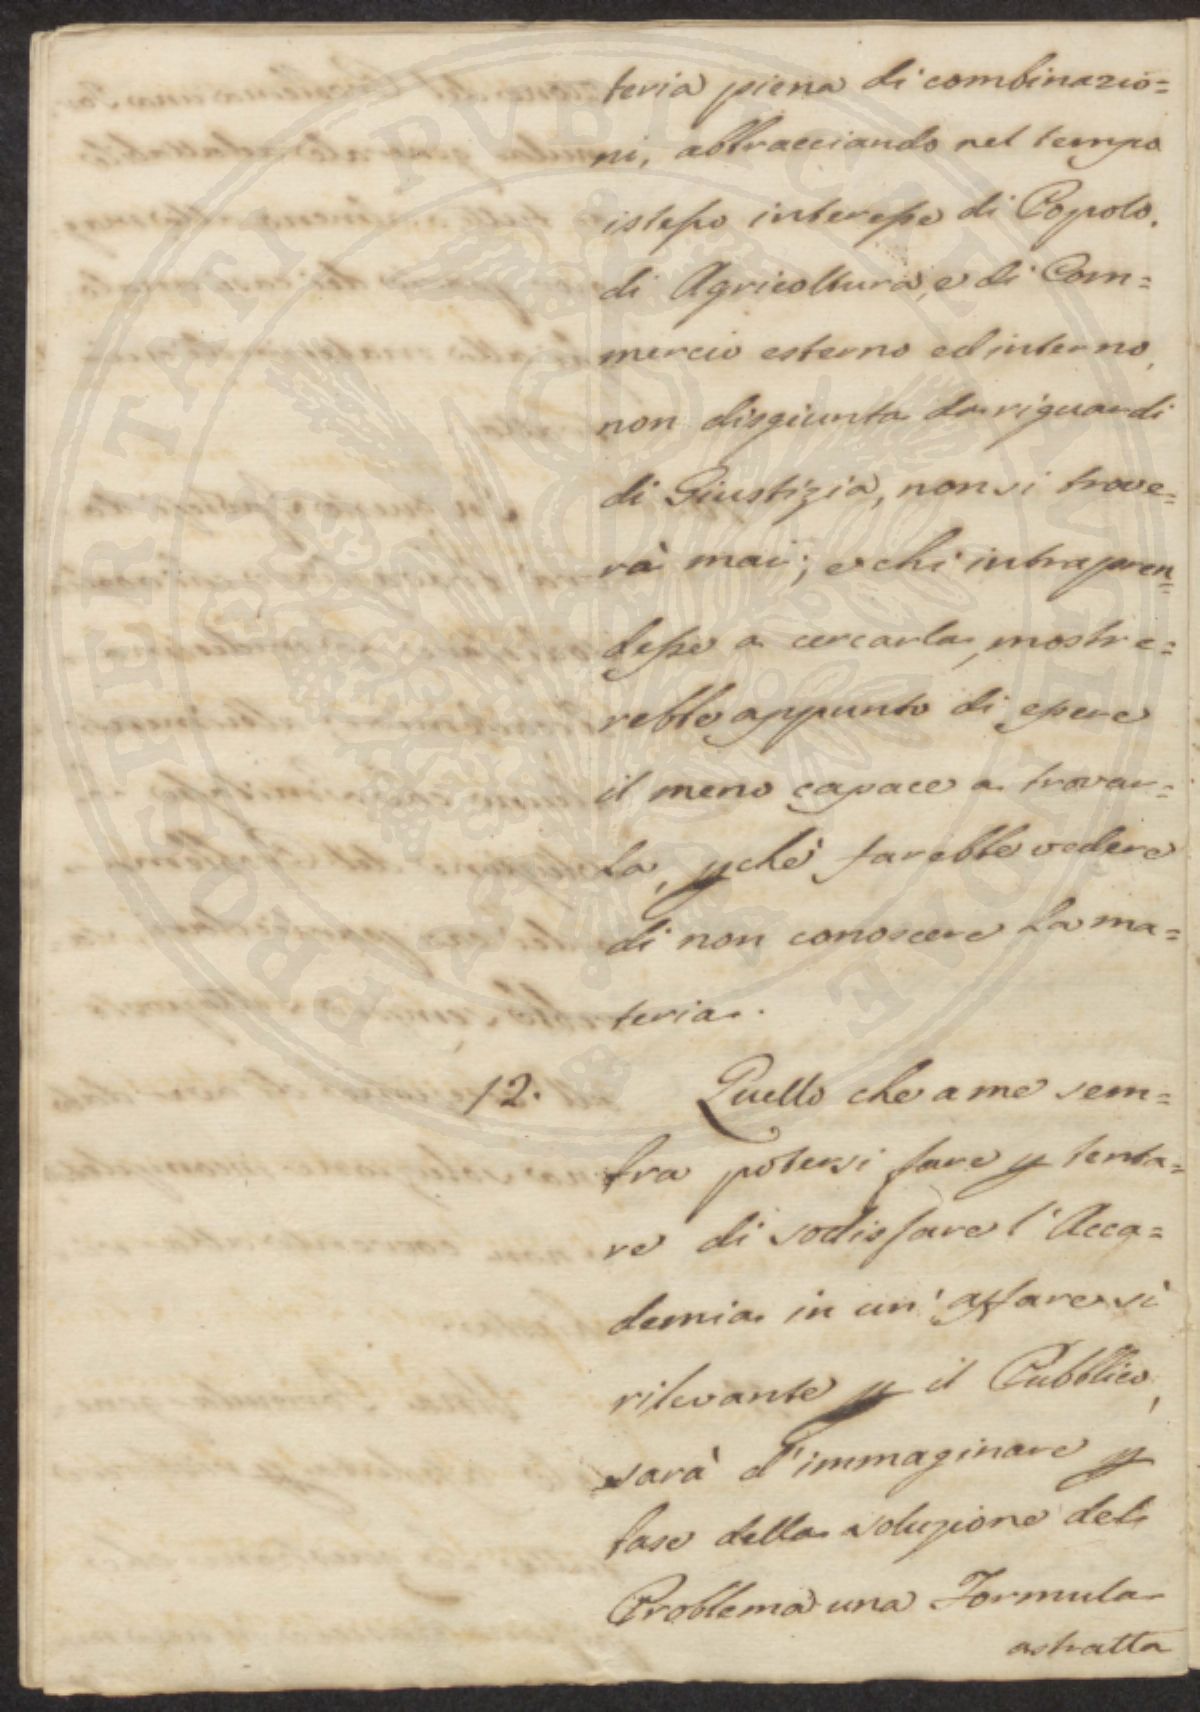 teria piena di combinazio=
ni, abbracciando nel tempo
istesso interesse di Popolo,
di Agricoltura, e di Com=
mercio esterno ed interno,
non disgiunta da riguardi
di Giustizia, non si trove=
rà mai; e chi intrapren=
desse a cercarla, mostre=
rebbe appunto di essere
il meno capace a trovar=
la, pchè farebbe vedere
di non conoscere la ma=
teria.
12. Quello che a me sem=
bra potersi fare p tenta=
re di sodisfare l'Acca=
demia in un' affare sì
rilevante p il Pubblico,
sarà d'immaginare p
base della soluzione del
Problema una Formula
astratta
PROSPERITATI PUBLICAE AUGENDAE